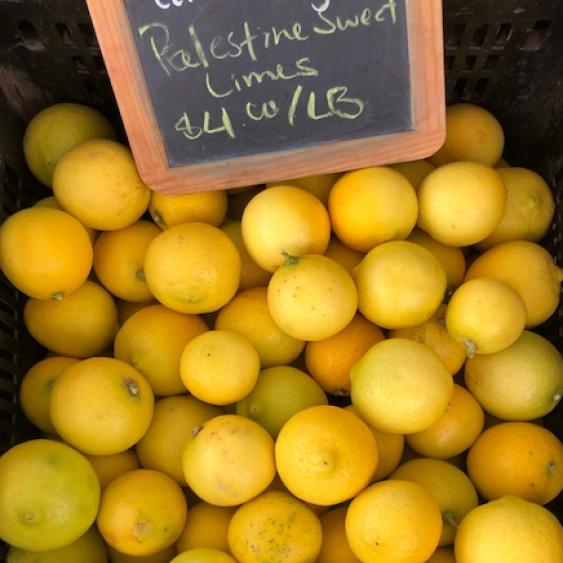 Palestine Sweet
Limes
$4.00/LB